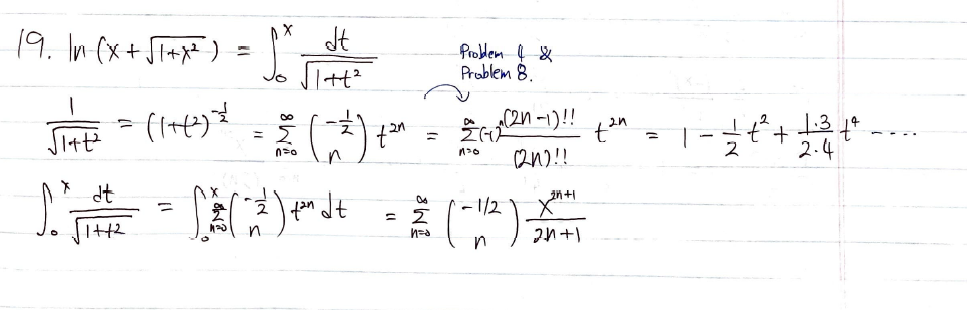 19. ln(x + √(1+x²)) = ∫₀ˣ dt/√(1+t²)
Problem 4 &
Problem 8.
1/√(1+t²) = (1+t²)^(-1/2) = ∑_{n=0}^{∞} (-1/2 choose n) t^(2n) = ∑_{n=0}^{∞} (-1)^n (2n-1)!!/(2n)!! t^(2n) = 1 - 1/2 t² + 1.3/2.4 t⁴ - ....
∫₀ˣ dt/√(1+t²) = ∫₀ˣ ∑_{n=0}^{∞} (-1/2 choose n) t^(2n) dt = ∑_{n=0}^{∞} (-1/2 choose n) x^(2n+1)/(2n+1)